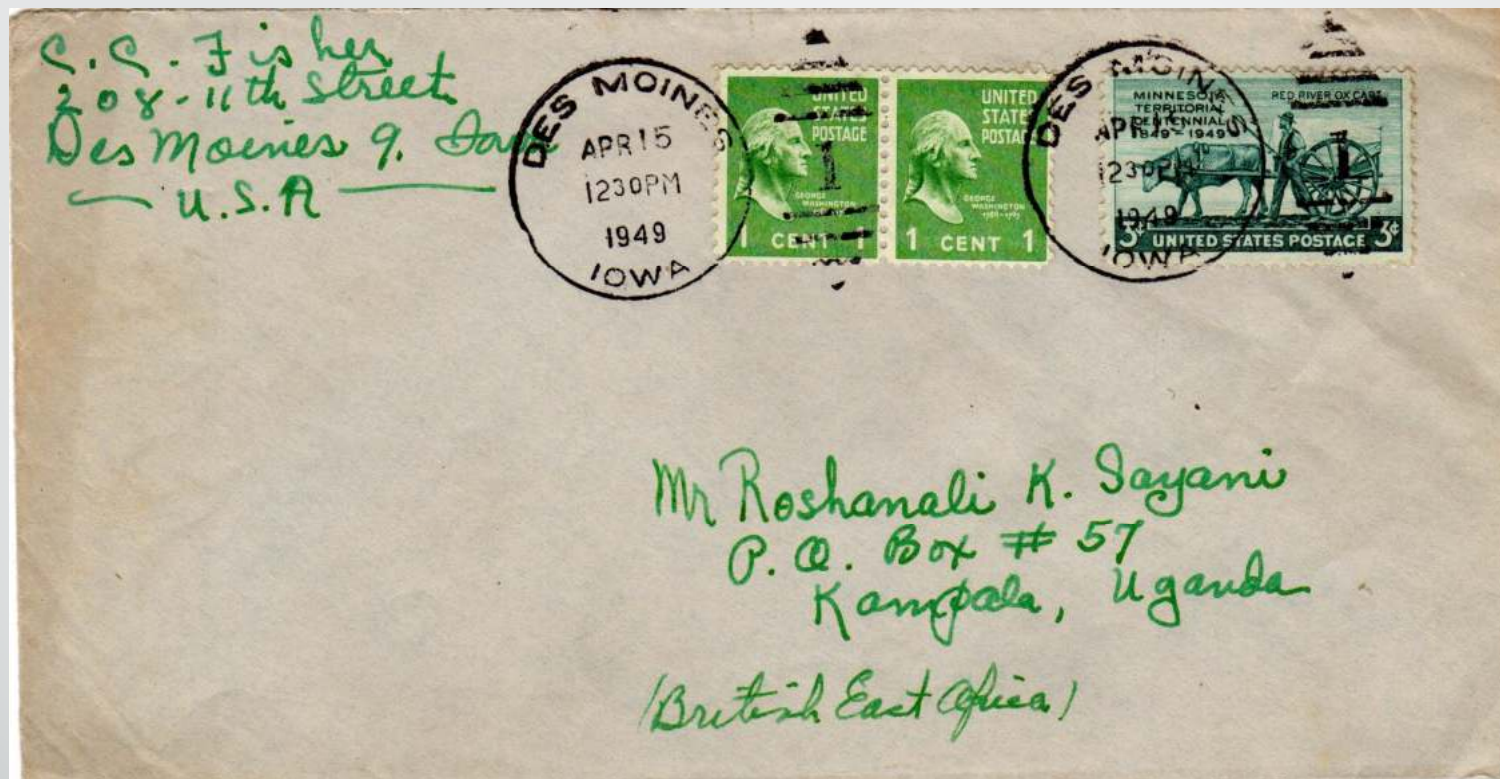 C. C. Fisher
208 - 11th Street
Des Moines 9. Iowa
U.S.A
DES MOINES
APR 15
12 30 PM
1949
IOWA
UNITED
STATES
POSTAGE
GEORGE
WASHINGTON
1 CENT 1
UNITED
STATES
POSTAGE
GEORGE
WASHINGTON
1789-1797
1 CENT 1
DES MOINES
APR
12 30 PM
1949
IOWA
MINNESOTA
TERRITORIAL
CENTENNIAL
1849-1949
RED RIVER OX CART
3¢ UNITED STATES POSTAGE 3¢
Mr Roshanali K. Sayani
P.O. Box # 57
Kampala, Uganda
(British East Africa)